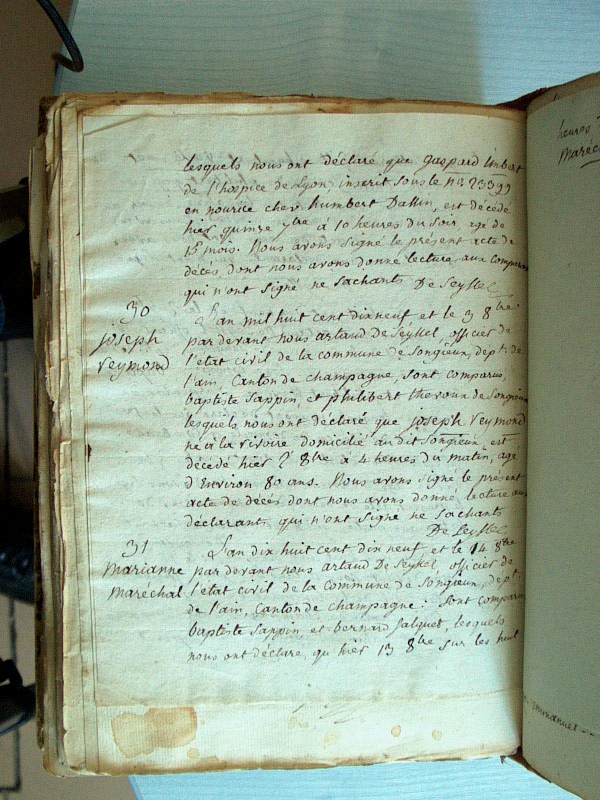 lesquels nous ont déclaré que gaspard Umbert
de l'hospice de Lyon, inscrit sous le N.B 23599
en nourice chez humbert Dallin, est décédé
hier quinze 7bre à 10 heures du Soir, agé de
15 mois. Nous avons signé le présent acte de
décés, dont nous avons donné lecture aux comparus
qui n'ont signé ne sachants De Seyssel
30
joseph
veymond
L'an mil huit cent dixneuf et le 3 8bre
par devant nous artaud De Seyssel, officier de
l'état civil de la commune de Songieux, dept. de
l'ain, Canton de champagne, sont comparus,
baptiste Sappin, et philibert thevoux de Songieux
lesquels nous ont déclaré que joseph veymond
né à la visoire domicilié audit Songieux est
décédé hier 2 8bre à 4 heures du matin, agé
d'Environ 80 ans. Nous avons signé le présent
acte de décés dont nous avons donné lecture aux
déclarants qui n'ont signé ne sachants
De Seyssel
31
Marianne
Maréchal
L'an dix huit cent dix neuf, et le 14 8bre
par devant nous artaud De Seyssel, officier de
l'état civil de la commune de Songieux, dept.
de l'ain, Canton de champagne: Sont comparus
baptiste Sappin, et bernard falquet, lesquels
nous ont déclaré, qu'hier 13 8bre sur les huit
heures
Maréch
emmanuel